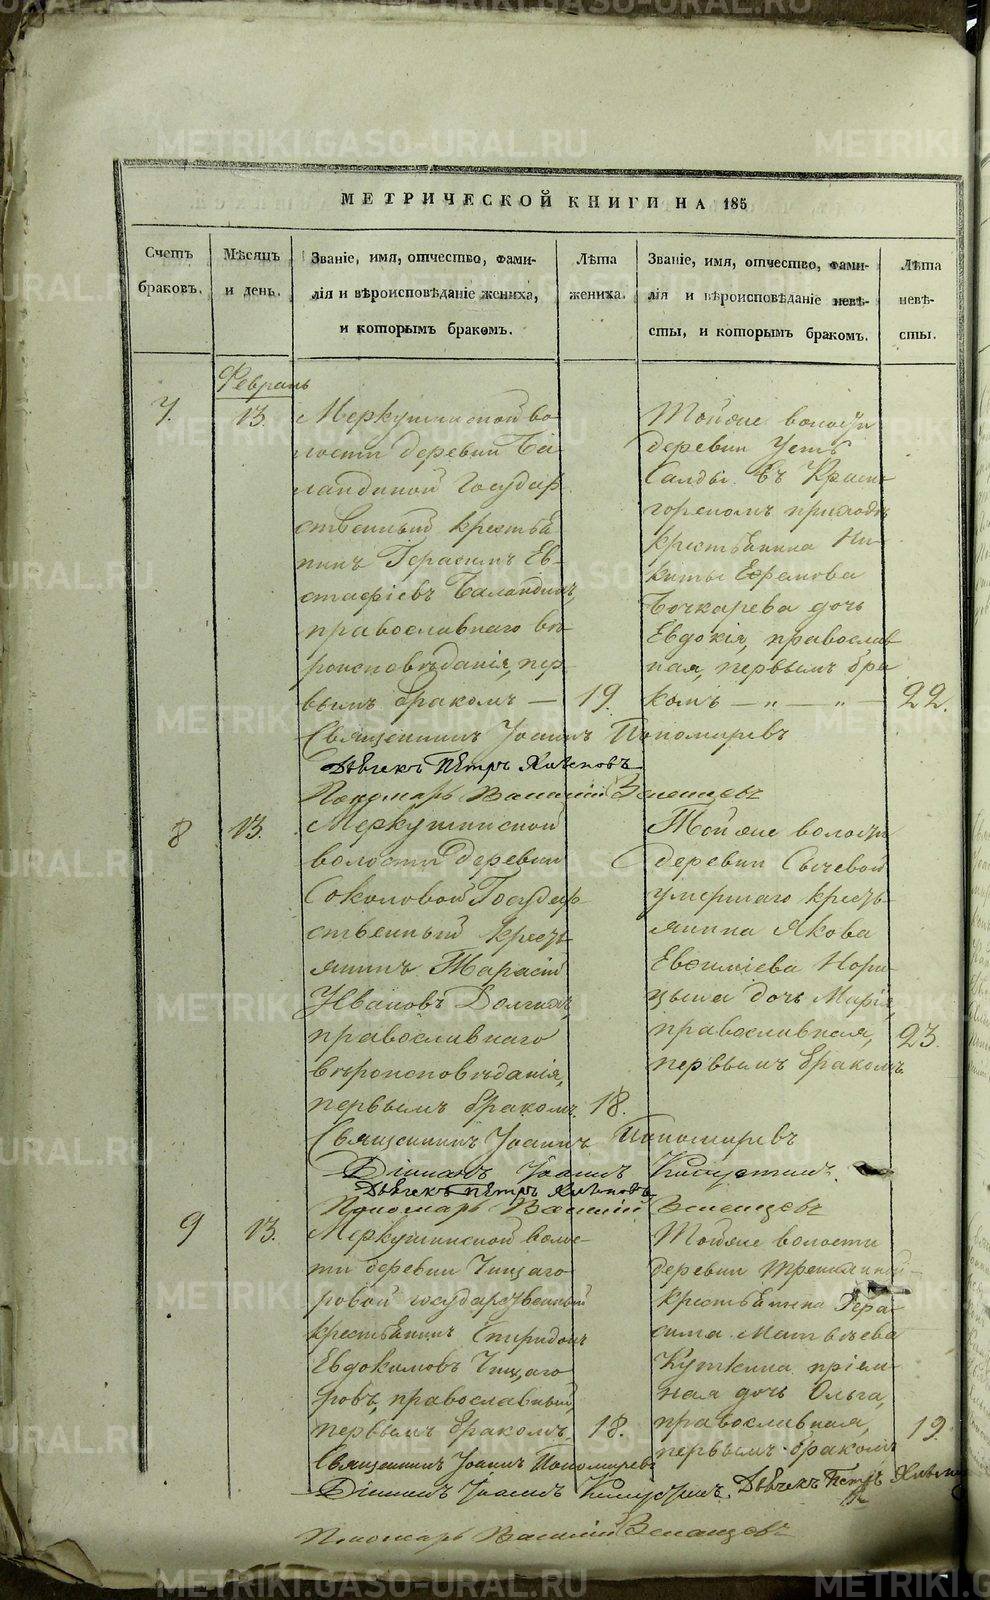 МЕТРИЧЕСКОЙ КНИГИ НА 185
Счетъ браковъ.
Мѣсяцъ и день.
Званіе, имя, отчество, фами-
лія и вѣроисповѣданіе жениха,
и которымъ бракомъ.
Лѣта жениха.
Званіе, имя, отчество, фами-
лія и вѣроисповѣданіе невѣ-
сты, и которымъ бракомъ.
Лѣта невѣ-
сты.
Февраль
7.
13.
Меркушинской во-
лости деревни Ба
ландиной Государ
ственный крестья
нинъ Герасимъ Ев-
стафіевъ Баландинъ,
православнаго вѣ-
роисповѣданія, пер-
вымъ бракомъ —
19.
Тойже волости
деревни Усть
Салды въ Красно
горскомъ приходѣ
крестьянина Ни-
киты Ефремова
Бочкарева дочь
Евдокія, православ
ная, первымъ бра
комъ — „ — „ —
22.
Священникъ Іоаннъ Пономаревъ
Дьячекъ Петръ Хлѣновъ
Пономарь Василій Зеленцовъ
8
13.
Меркушинской
волости деревни
Соколовой Государ
ственный кресть
янинъ Тарасій
Ивановъ Долгихъ,
православнаго
вѣроисповѣданія,
первымъ бракомъ.
18.
Той же волости
деревни Сычевой
умершаго кресть-
янина Якова
Евфиміева Нори-
цына дочь Марія,
православная,
первымъ бракомъ
23.
Священникъ Іоаннъ Пономаревъ
Діаконъ Іоаннъ
Дьячекъ Петръ Хлѣновъ
Пономарь Василій Зеленцовъ
9
13.
Меркушинской волос-
ти деревни Чищаго
ровой государственный
крестьянинъ Спиридонъ
Евдокимовъ Чищаго
ровъ, православный,
первымъ бракомъ.
18.
Тойже волости
деревни
крестьянина Гера-
сима Матвѣева
Куткина пріем-
ная дочь Ольга,
православная,
первымъ бракомъ
19.
Священникъ Іоаннъ Пономаревъ
Діаконъ Іоаннъ Дьячекъ Петръ
Пономарь Василій Зеленцовъ
METRIKI.GASO-URAL.RU